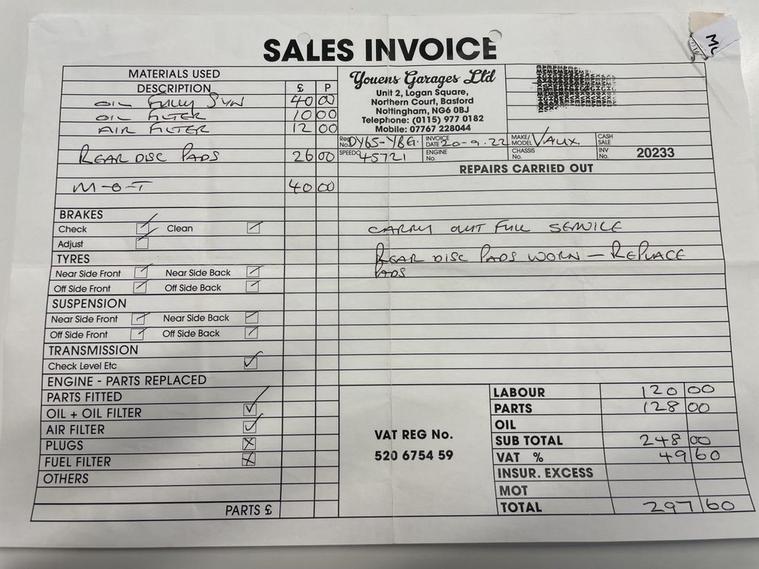 SALES INVOICE
MATERIALS USED
DESCRIPTION £ P
OIL FULLY SYN 40 00
OIL FILTER 10 00
AIR FILTER 12 00
REAR DISC PADS 26 00
M-O-T 40 00
BRAKES
Check Clean
Adjust
TYRES
Near Side Front Near Side Back
Off Side Front Off Side Back
SUSPENSION
Near Side Front Near Side Back
Off Side Front Off Side Back
TRANSMISSION
Check Level Etc
ENGINE - PARTS REPLACED
PARTS FITTED
OIL + OIL FILTER
AIR FILTER
PLUGS
FUEL FILTER
OTHERS
PARTS £
Youens Garages Ltd
Unit 2, Logan Square,
Northern Court, Basford
Nottingham, NG6 0BJ
Telephone: (0115) 977 0182
Mobile: 07767 228044
Reg No. DY65-YBG INVOICE DATE 20-9.22 MAKE/ MODEL VAUX. CASH SALE
SPEEDO 45721 ENGINE No. CHASSIS No. INV No. 20233
REPAIRS CARRIED OUT
CARRY OUT FULL SERVICE
REAR DISC PADS WORN — REPLACE
PADS
VAT REG No.
520 6754 59
LABOUR 120 00
PARTS 128 00
OIL
SUB TOTAL 248 00
VAT % 49 60
INSUR. EXCESS
MOT
TOTAL 297 60